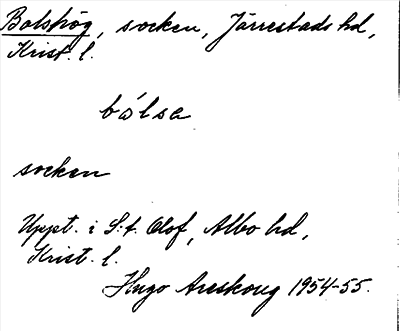 Bolshög, socken, Järrestads hd,
Krist. l.
bòlsa
socken
Uppt. i S:t. Olof, Albo hd,
Krist. l.
Hugo Areskoug 1954-55.